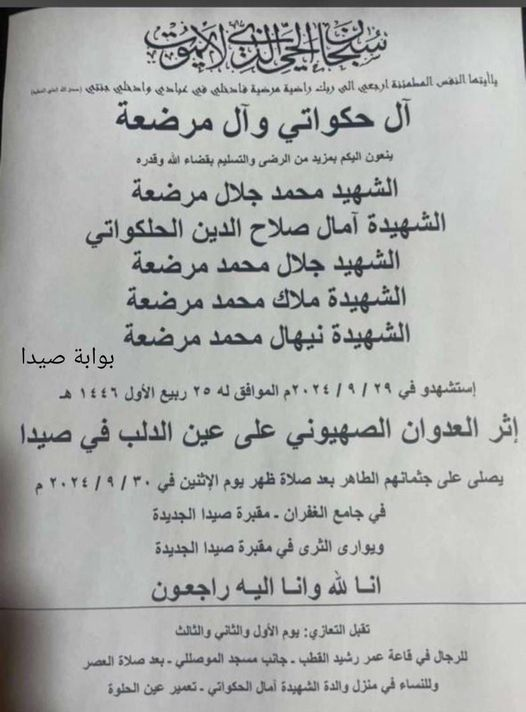 سبحان الحي الذي لا يموت
ياأيتها النفس المطمئنة ارجعي الى ربك راضية مرضية فادخلي في عبادي وادخلي جنتي
آل حكواتي وآل مرضعة
ينعون اليكم بمزيد من الرضى والتسليم بقضاء الله وقدره
الشهيد محمد جلال مرضعة
الشهيدة آمال صلاح الدين الحلكواتي
الشهيد جلال محمد مرضعة
الشهيدة ملاك محمد مرضعة
الشهيدة نيهال محمد مرضعة
بوابة صيدا
إستشهدو في ٢٩ / ٩ / ٢٠٢٤م الموافق له ٢٥ ربيع الأول ١٤٤٦ هـ
إثر العدوان الصهيوني على عين الدلب في صيدا
يصلى على جثمانهم الطاهر بعد صلاة ظهر يوم الإثنين في ٣٠ / ٩ / ٢٠٢٤ م
في جامع الغفران - مقبرة صيدا الجديدة
ويوارى الثرى في مقبرة صيدا الجديدة
انا لله وانا اليه راجعون
تقبل التعازي: يوم الأول والثاني والثالث
للرجال في قاعة عمر رشيد القطب - جانب مسجد الموصللي - بعد صلاة العصر
وللنساء في منزل والدة الشهيدة آمال الحكواتي - تعمير عين الحلوة